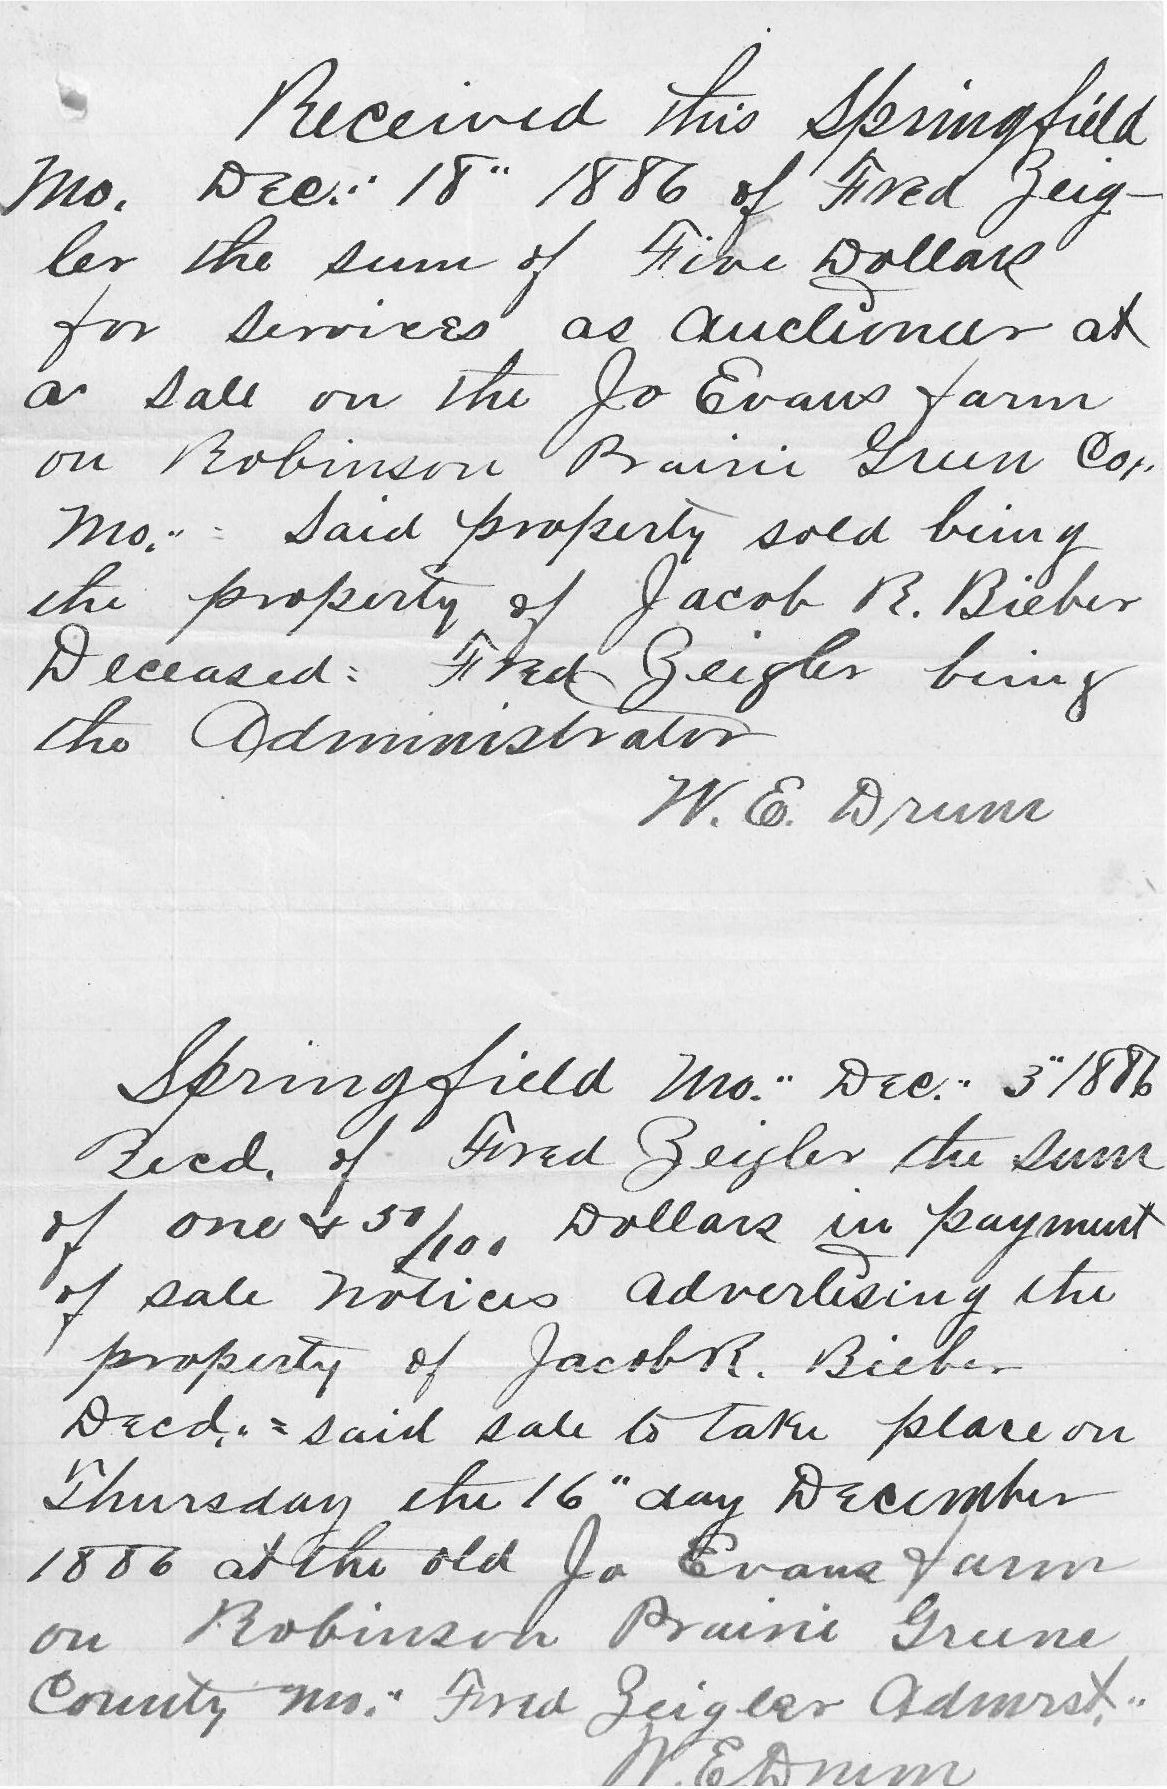 Received this Springfield
Mo. Dec.: 18" 1886 of Fred Zeig-
ler the sum of Five Dollars
for services as Auctioneer at
a sale on the Jo Evans farm
on Robinson Prairie Green Co.,
Mo.: = Said property sold being
the property of Jacob R. Bieber
Deceased: Fred Zeigler being
the Administrator
W. E. Drum
Springfield Mo.: Dec.: 3" 1886
Recd. of Fred Zeigler the sum
of one & 50/100 Dollars in payment
of sale notices advertising the
property of Jacob R. Bieber
Decd.: = said sale to take place on
Thursday the 16" day December
1886 at the old Jo Evans farm
on Robinson Prairie Greene
County Mo.: Fred Zeigler Admrst.:
W. E. Drum